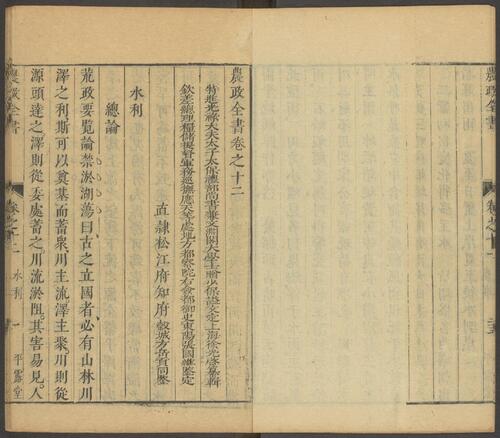 農政全書卷之十二
特進光祿大夫太子太保禮部尚書兼文淵閣大學士贈少保諡文定上海徐光啓纂輯
欽差總理糧儲提督軍務巡撫應天等處地方都察院右僉都御史東陽張國維鑒定
直隸松江府知府穀城方岳貢同鑒
水利
總論
荒政要覽論禁淤湖蕩曰古之立國者必有山林川
澤之利斯可以奠基而蓄衆川主流澤主聚川則從
源頭達之澤則從委處蓄之川流淤阻其害易見人
農政全書
卷之十二
水利
一
平露堂
農政全書